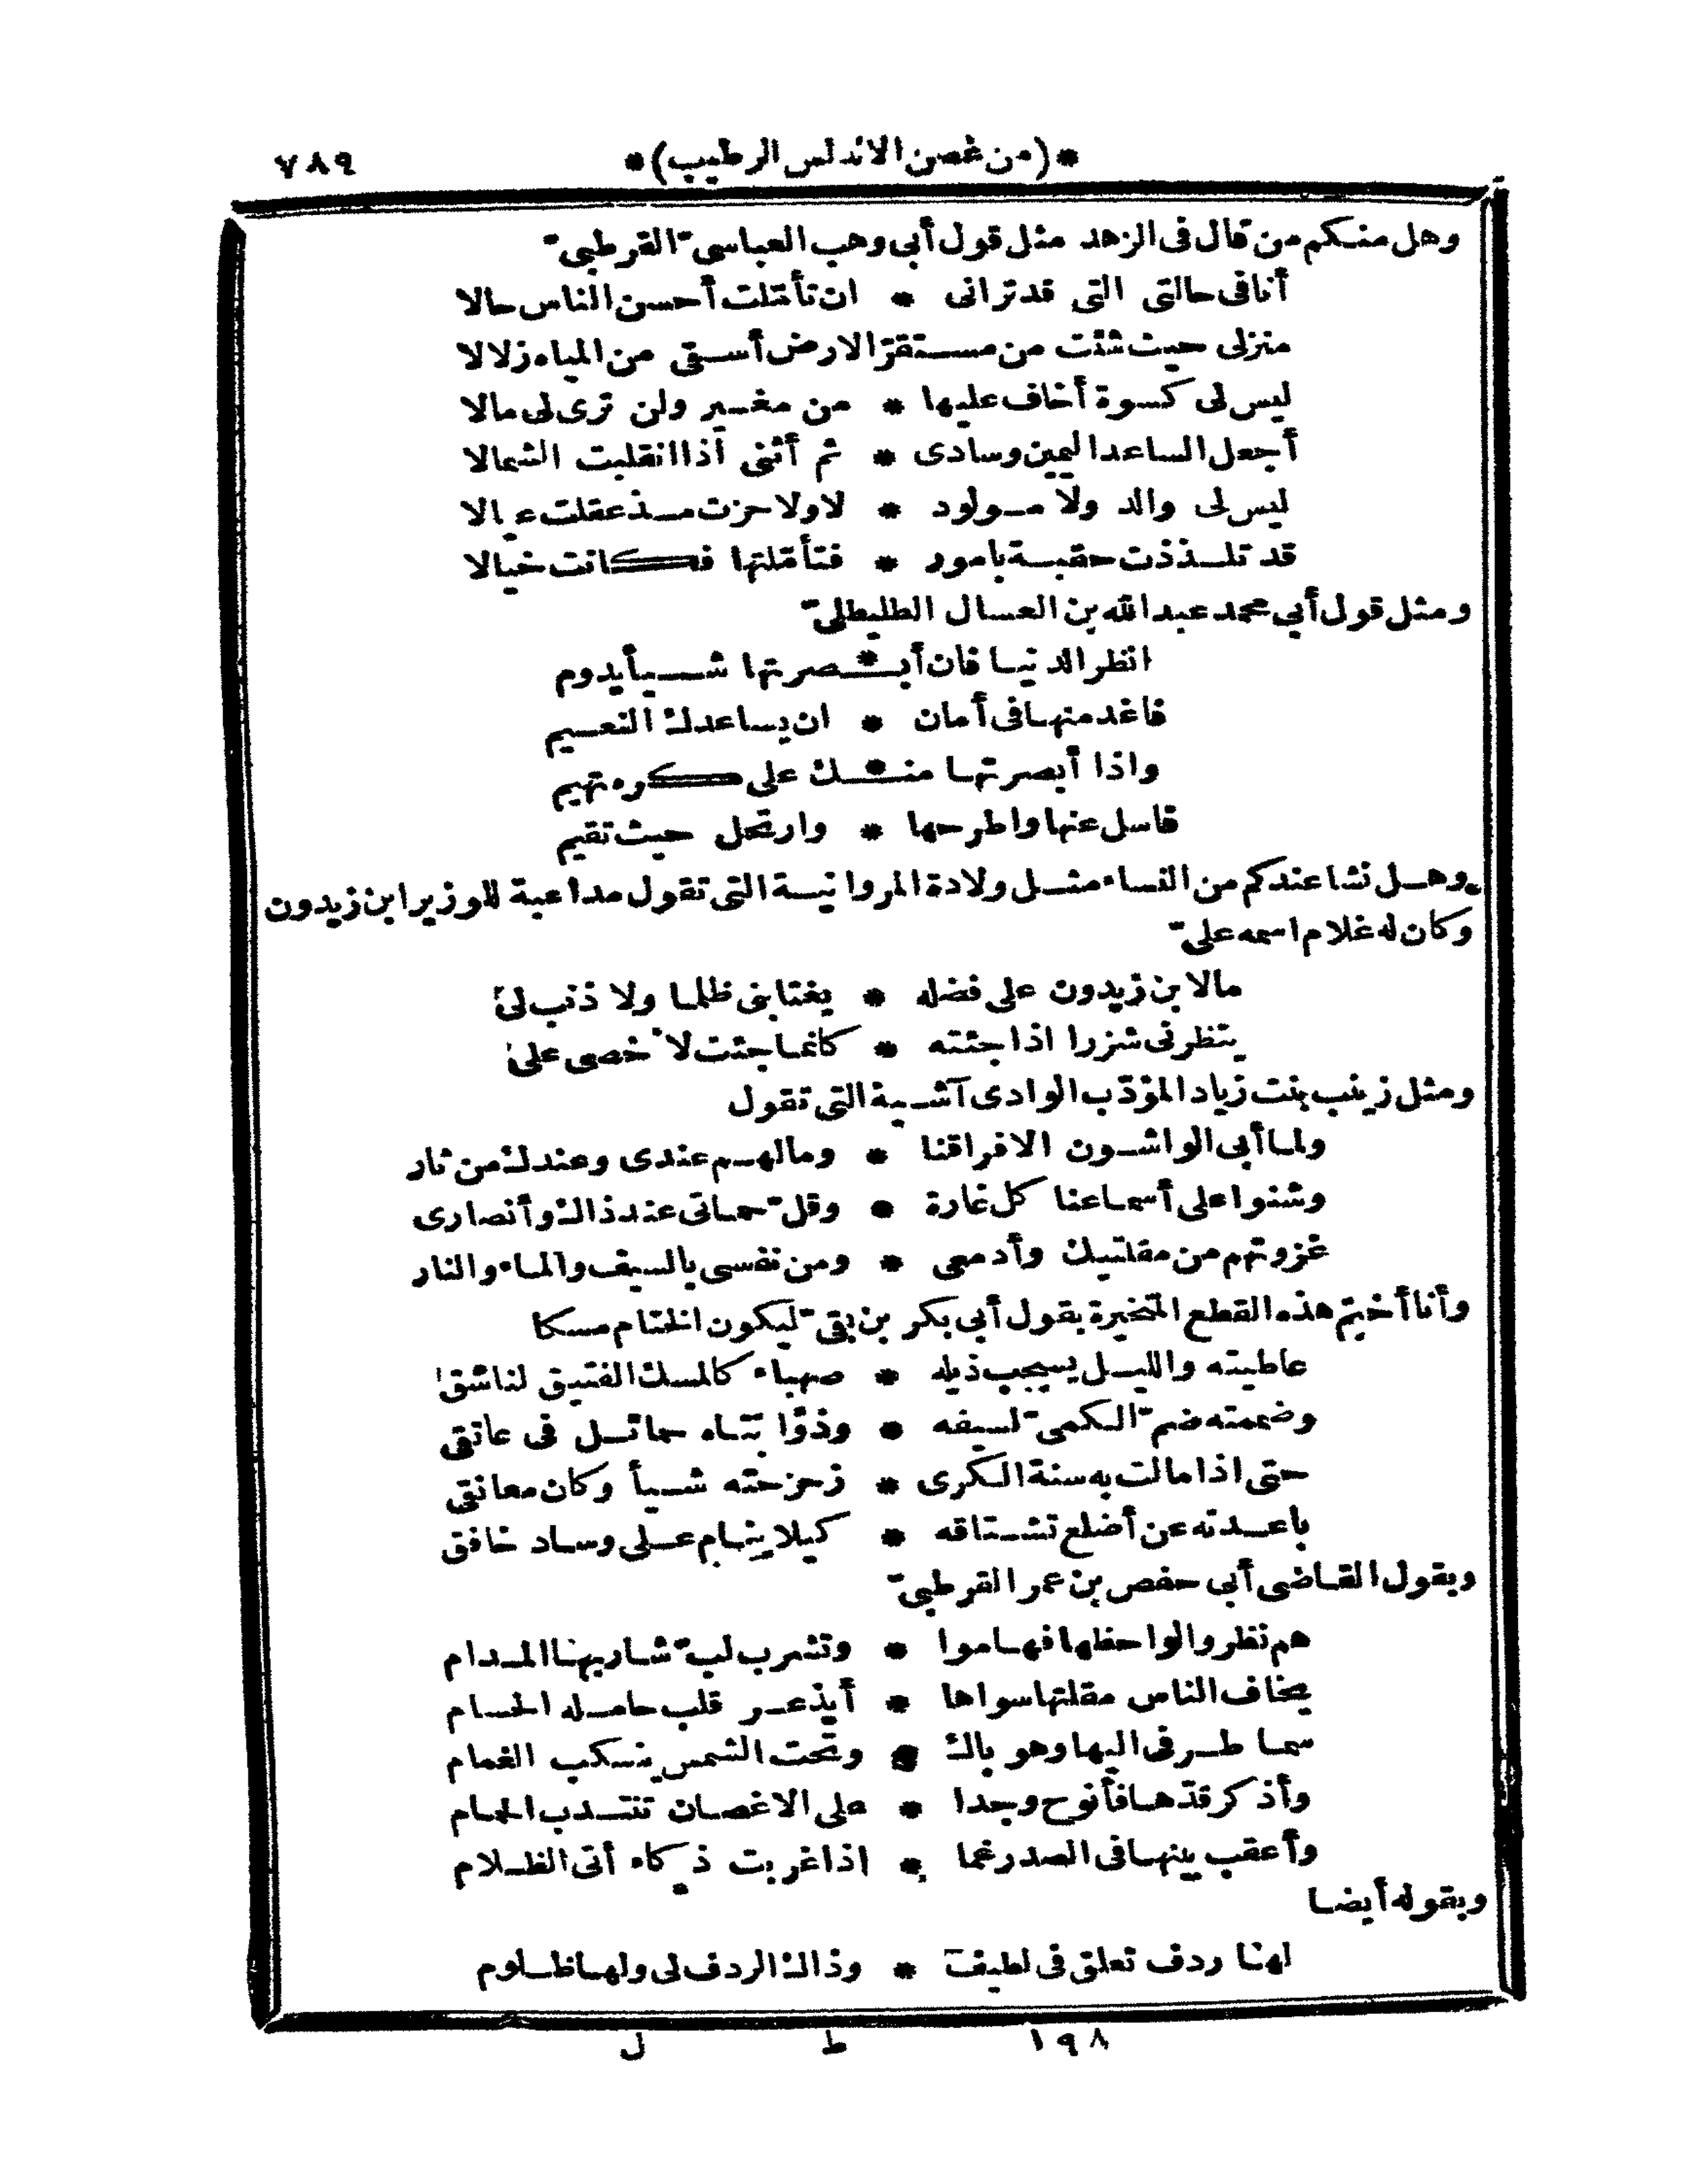 *(من غصن الاندلس الرطيب)* ٧٨٩
وهل منكم من قال فى الزهد مثل قول أبى وهب العباسىّ القرطبىّ
أنا فى حالتى التى قد ترانى * ان تأمّلت أحسن الناس حالا
منزلى حيث شئت من مستقرّ الارض أسقى من المياه زلالا
ليس لى كسوة أخاف عليها * من مغير ولن ترى لى مالا
أجعل الساعد اليمين وسادى * ثم أثنى اذا انقلبت الشمالا
ليس لى والد ولا مولود * لا ولا حزت مذ عقلت عيالا
قد تلذذت حقبة بامور * فتأمّلتها فكانت خيالا
ومثل قول أبى محمد عبد الله بن العسال الطليطلىّ
انظر الدنيا فان أبـ*ـصرتها شيأ يدوم
فاغد منها فى أمان * ان يساعدك النعيم
واذا أبصرتها منـ*ـك على كره تهيم
فاسل عنها واطرحها * وارتحل حيث تقيم
وهل نشا عندكم من النساء مثل ولادة المروانية التى تقول مداعبة للوزير ابن زيدون
وكان له غلام اسمه علىّ
ما لابن زيدون على فضله * يغتابنى ظلما ولا ذنب لى
ينظرنى شزرا اذا جئته * كأنما جئت لاخصى على
ومثل زينب بنت زياد المؤدّب الوادى آشية التى تقول
ولما أبى الواشون الا فراقنا * وما لهم عندى وعندك من ثار
وشنوا على أسماعنا كل غارة * وقلّ حماتى عند ذاك وأنصارى
غزوتهم من مقلتيك وأدمعى * ومن نفسى بالسيف والماء والنار
وأنا أختم هذه القطع المتخيرة بقول أبى بكر بن بقىّ ليكون الختام مسكا
عاطيته والليل يسحب ذيله * صهباء كالمسك الفتيق لناشق
وضممته ضمّ الكمىّ لسيفه * وذؤابتاه حمائل فى عاتقى
حتى اذا مالت به سنة الكرى * زحزحته شيأ وكان معانقى
باعدته عن أضلع تشتاقه * كيلا ينام على وساد خافق
وبقول القاضى أبى حفص بن عمر القرطبىّ
هم نظروا لواحظها فهاموا * وتشرب لبّ شاربها المدام
يخاف الناس مقلتها سواها * أيذعر قلب حامله الحسام
سما طرفى اليها وهو باك * وتحت الشمس ينسكب الغمام
وأذكر قدّها فأنوح وجدا * على الاغصان تنتدب الحمام
وأعقب بينها فى الصدر غما * اذا غربت ذكاء أتى الظلام
وبقوله أيضا
لها ردف تعلق فى لطيف * وذاك الردف لى ولها ظلوم
١٩٨ ط ل